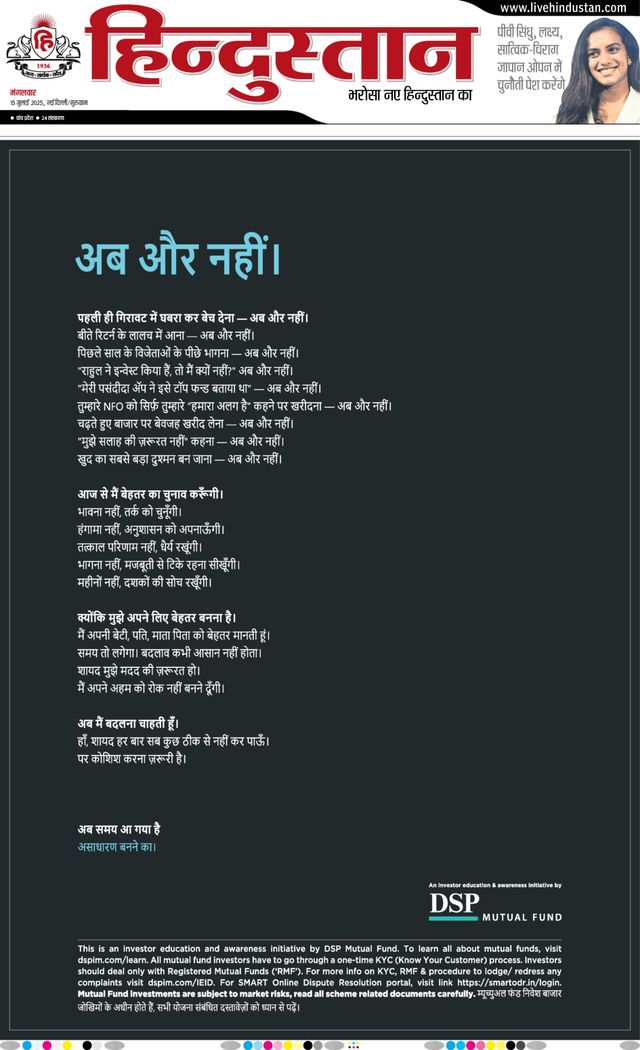 www.livehindustan.com
हिन्दुस्तान
हि
1936
भरोसा नए हिन्दुस्तान का
मंगलवार
15 जुलाई 2025, नई दिल्ली/गुरुग्राम
● पांच प्रदेश ● 24 संस्करण
पीवी सिंधु, लक्ष्य,
सात्विक-चिराग
जापान ओपन में
चुनौती पेश करेंगे
अब और नहीं।
पहली ही गिरावट में घबरा कर बेच देना — अब और नहीं।
बीते रिटर्न के लालच में आना — अब और नहीं।
पिछले साल के विजेताओं के पीछे भागना — अब और नहीं।
"राहुल ने इन्वेस्ट किया हैं, तो मैं क्यों नहीं?" अब और नहीं।
"मेरी पसंदीदा ॲप ने इसे टॉप फन्ड बताया था" — अब और नहीं।
तुम्हारे NFO को सिर्फ़ तुम्हारे "हमारा अलग है" कहने पर खरीदना — अब और नहीं।
चढ़ते हुए बाजार पर बेवजह खरीद लेना — अब और नहीं।
"मुझे सलाह की ज़रूरत नहीं" कहना — अब और नहीं।
खुद का सबसे बड़ा दुश्मन बन जाना — अब और नहीं।
आज से मैं बेहतर का चुनाव करूँगी।
भावना नहीं, तर्क को चुनूँगी।
हंगामा नहीं, अनुशासन को अपनाऊँगी।
तत्काल परिणाम नहीं, धैर्य रखूंगी।
भागना नहीं, मजबूती से टिके रहना सीखूँगी।
महीनों नहीं, दशकों की सोच रखूँगी।
क्योंकि मुझे अपने लिए बेहतर बनना है।
मैं अपनी बेटी, पति, माता पिता को बेहतर मानती हूं।
समय तो लगेगा। बदलाव कभी आसान नहीं होता।
शायद मुझे मदद की ज़रूरत हो।
मैं अपने अहम को रोक नहीं बनने दूँगी।
अब मैं बदलना चाहती हूँ।
हाँ, शायद हर बार सब कुछ ठीक से नहीं कर पाऊँ।
पर कोशिश करना ज़रूरी है।
अब समय आ गया है
असाधारण बनने का।
An investor education & awareness initiative by
DSP
MUTUAL FUND
This is an investor education and awareness initiative by DSP Mutual Fund. To learn all about mutual funds, visit
dspim.com/learn. All mutual fund investors have to go through a one-time KYC (Know Your Customer) process. Investors
should deal only with Registered Mutual Funds ('RMF'). For more info on KYC, RMF & procedure to lodge/ redress any
complaints visit dspim.com/IEID. For SMART Online Dispute Resolution portal, visit link https://smartodr.in/login.
Mutual Fund investments are subject to market risks, read all scheme related documents carefully. म्यूच्युअल फंड निवेश बाजार
जोखिमों के अधीन होते हैं, सभी योजना संबंधित दस्तावेज़ों को ध्यान से पढ़ें।